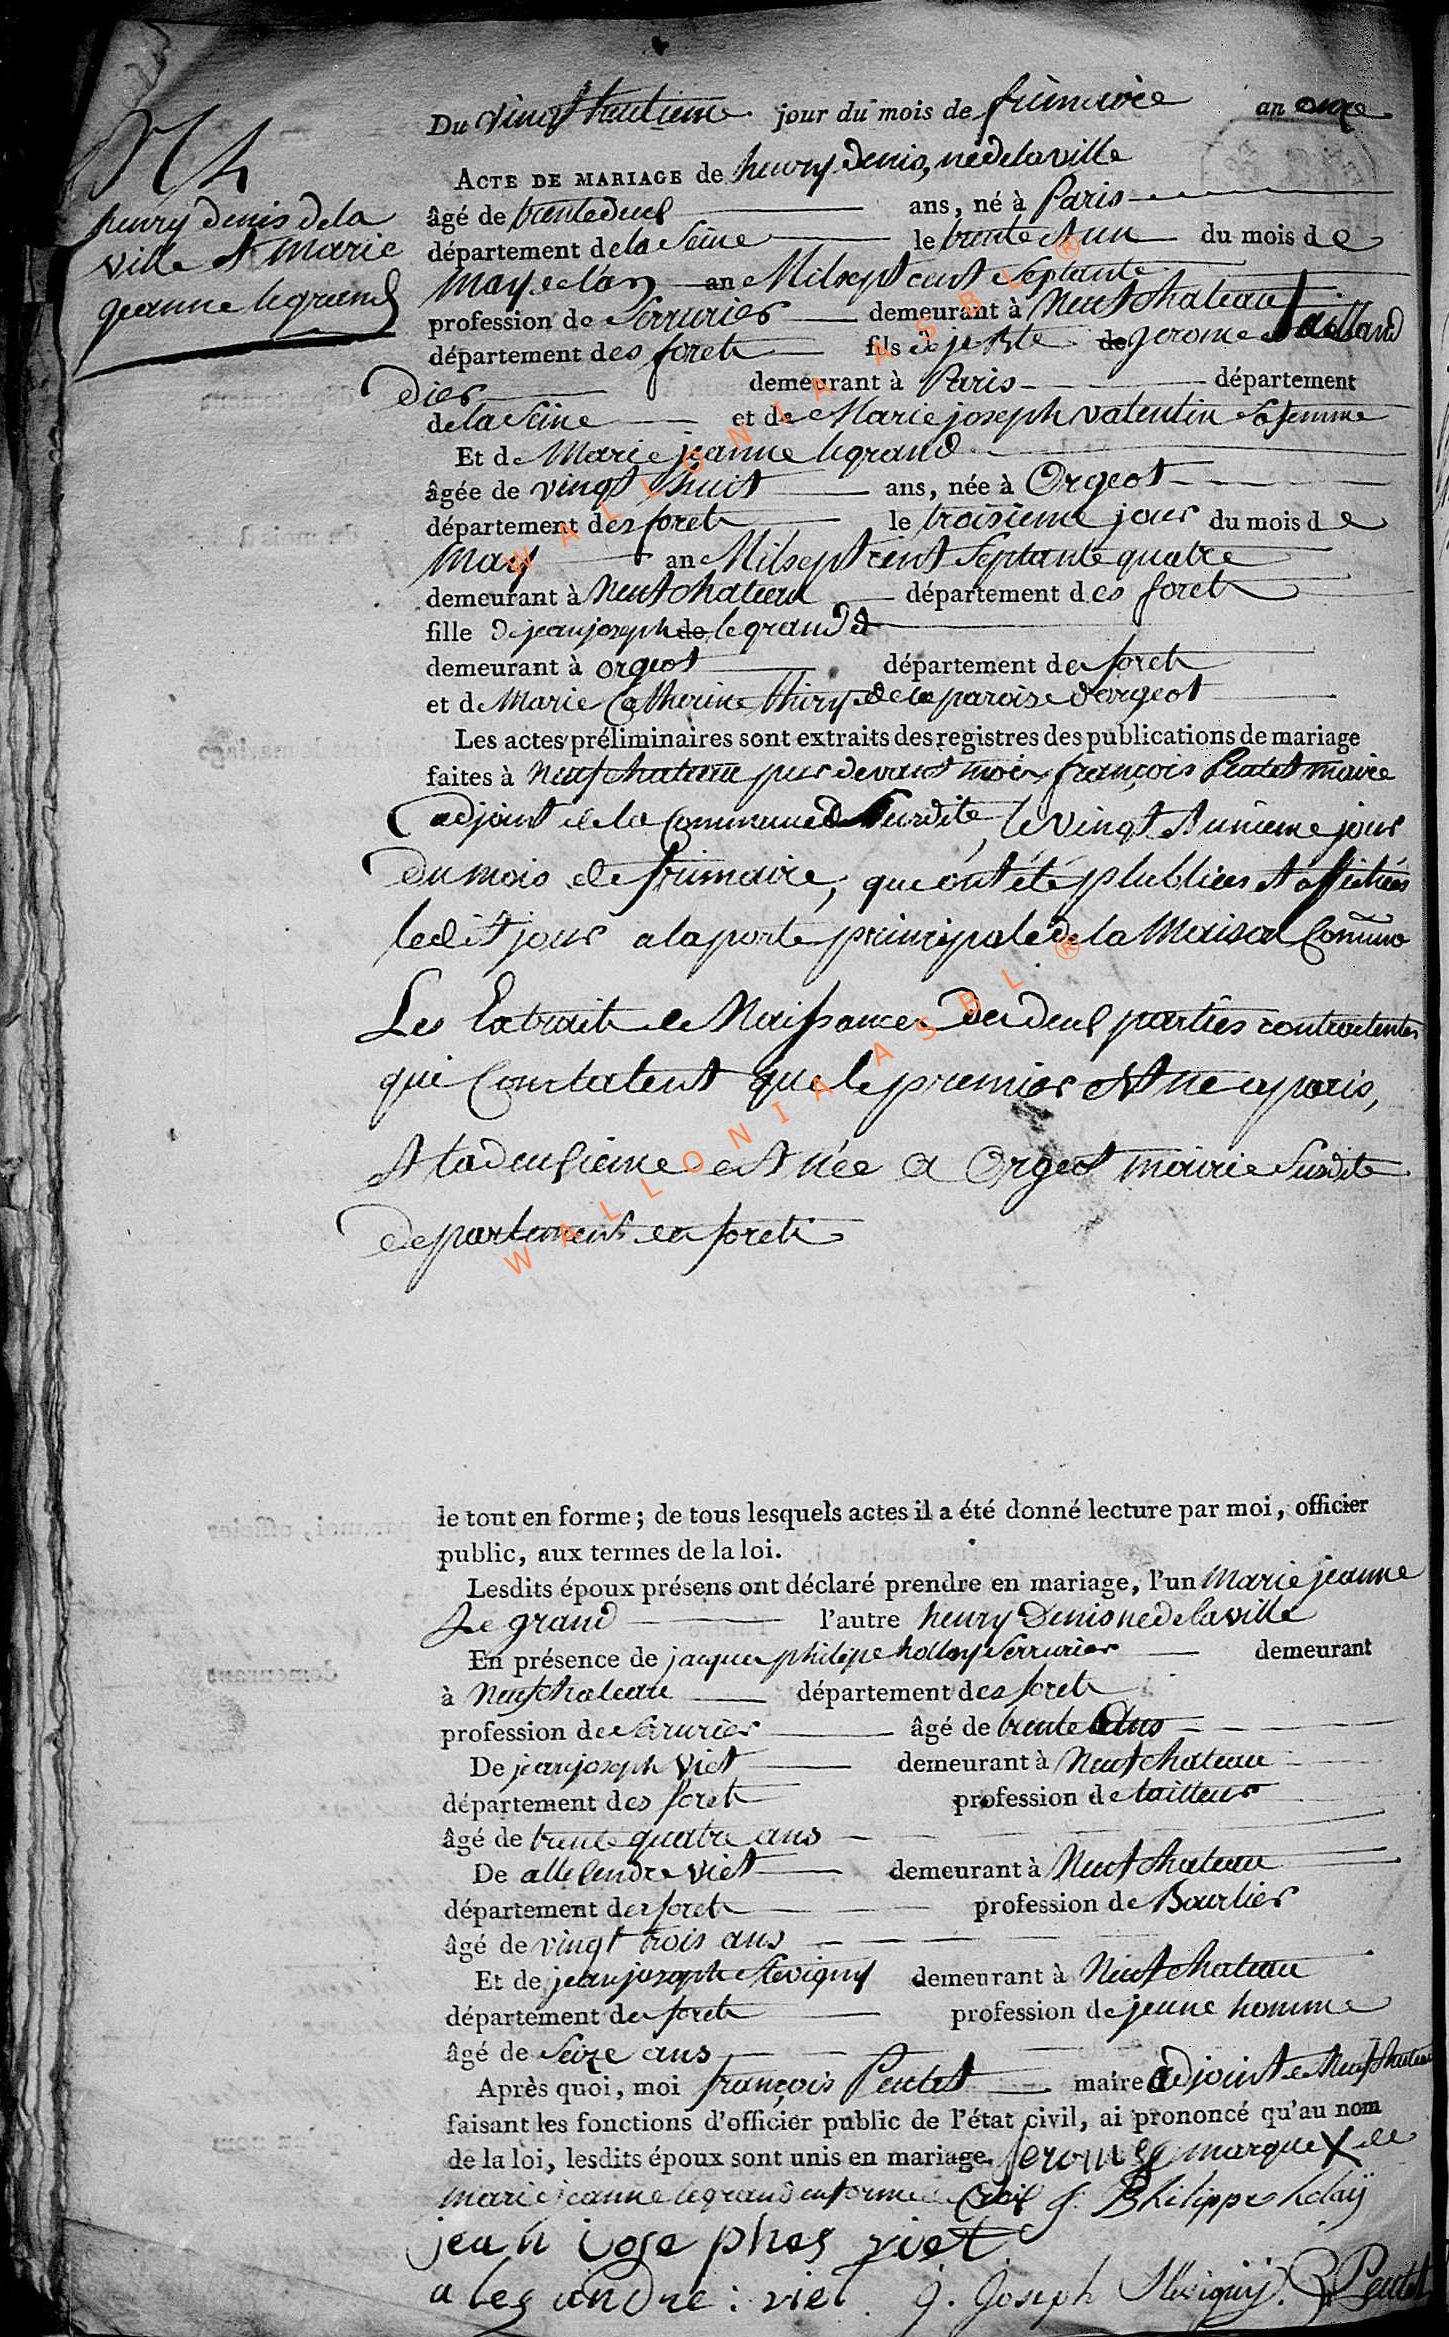 Du vingt huitieme jour du mois de frimaire an onze
N 4
henry denis dela
ville et Marie
jeanne legrand
ACTE DE MARIAGE de henry denis, né delaville
âgé de trente deux ans, né à Paris
département de la Seine le trente et un du mois de
may de l'an an Mil sept cent septante
profession de Serrurier demeurant à Neufchateau
département des foret fils de jerome tailland
dier demeurant à Paris département
de la Seine et de Marie joseph valentin sa femme
Et de Marie jeanne legrand
âgée de vingt huit ans, née à Orgeot
département des foret le troisieme jour du mois de
May an Mil sept cent septante quatre
demeurant à Neufchateau département des foret
fille de jean joseph de legrand et
demeurant à orgeot département des foret
et de Marie Catherine thiry de la paroise d'orgeot
Les actes préliminaires sont extraits des registres des publications de mariage
faites à neufchateau par devant moi françois Peutet maire
adjoint de la Commune susdite, le vingt et unieme jour
du mois de frimaire, que ont été plubliées et affichées
ledit jour a la porte principale de la Maison Commune
Les Extrait de Naissance des deux parties contractentes
qui Constatent que le premier est né a paris,
et la deuxieme est née a Orgeot mairie susdite
departement des foret
le tout en forme; de tous lesquels actes il a été donné lecture par moi, officier
public, aux termes de la loi.
Lesdits époux présens ont déclaré prendre en mariage, l'un Marie jeanne
Le grand l'autre henry Denis né delaville
En présence de jacque philipe hollay Serrurier demeurant
à Neufchateau département des foret
profession de serrurier âgé de trente ans
De jean joseph viet demeurant à Neufchateau
département des foret profession de tailleur
âgé de trente quatre ans
De allexendre viet demeurant à Neufchateau
département des foret profession de Bourlier
âgé de vingt trois ans
Et de jean joseph Stevigny demeurant à Neufchateau
département des foret profession de jeune homme
âgé de Seize ans
Après quoi, moi françois Peutet maire adjoint de Neufchateau
faisant les fonctions d'officier public de l'état civil, ai prononcé qu'au nom
de la loi, lesdits époux sont unis en mariage. marque X de
marie jeanne legrand en forme de Croix J. Philippe holaÿ
jean iosephes viet
alegandre: viet J. Joseph Stevigny. Peutet
WALLONIA ASBL ®
WALLONIA ASBL ®